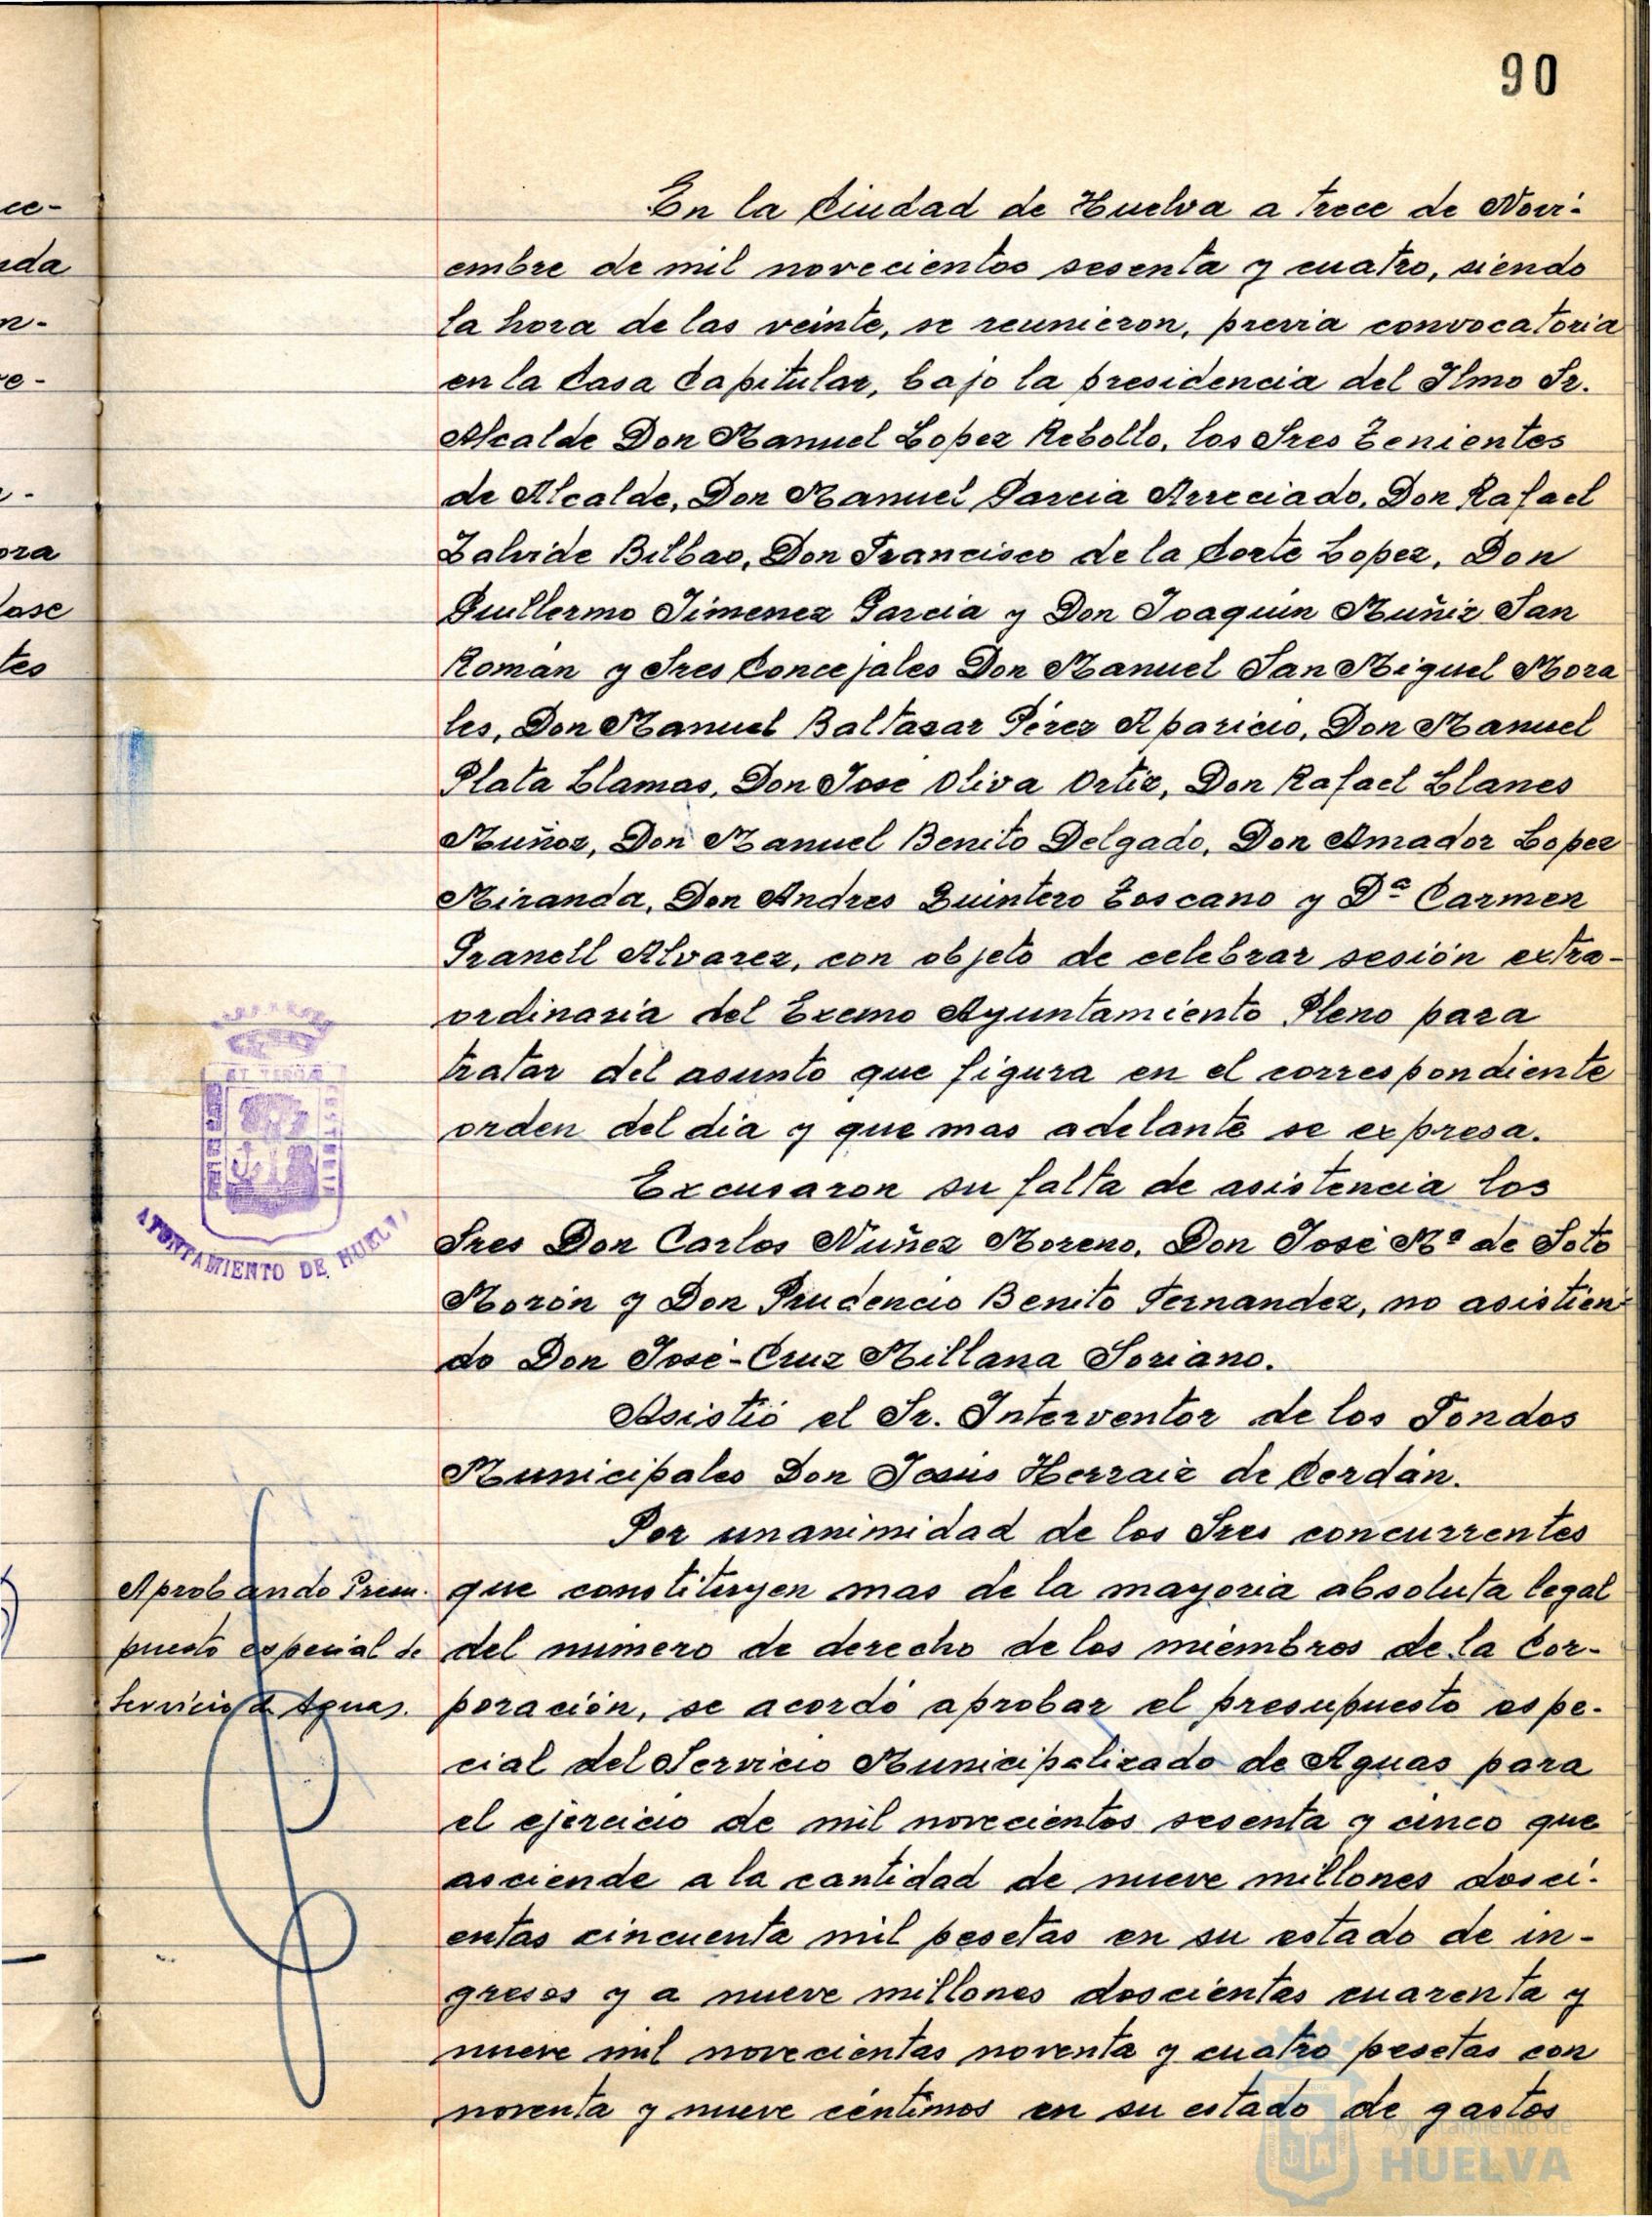 90
En la Ciudad de Huelva a trece de Novi-
embre de mil novecientos sesenta y cuatro, siendo
la hora de las veinte, se reunieron, previa convocatoria
en la Casa Capitular, bajo la presidencia del Ilmo Sr.
Alcalde Don Manuel Lopez Rebollo, los Sres Tenientes
de Alcalde, Don Manuel Garcia Arreciado, Don Rafael
Zalvide Bilbao, Don Francisco de la Corte Lopez, Don
Guillermo Jimenez Garcia y Don Joaquin Muñiz San
Román y Sres Concejales Don Manuel San Miguel Mora
les, Don Manuel Baltasar Pérez Aparicio, Don Manuel
Plata Llamas, Don Jose Oliva Ortiz, Don Rafael Llanes
Muñoz, Don Manuel Benito Delgado, Don Amador Lopez
Miranda, Don Andres Quintero Toscano y Dª Carmen
Granell Alvarez, con objeto de celebrar sesión extra-
ordinaria del Excmo Ayuntamiento Pleno para
tratar del asunto que figura en el correspondiente
orden del dia y que mas adelante se expresa.
Excusaron su falta de asistencia los
Sres Don Carlos Núñez Moreno, Don José Mª de Soto
Morón y Don Prudencio Benito Fernandez, no asistien-
do Don José-Cruz Millana Soriano.
Asistió el Sr. Interventor de los Fondos
Municipales Don Jesús Herraiz de Cerdán.
Por unanimidad de los Sres concurrentes
que constituyen mas de la mayoria absoluta legal
del numero de derecho de los miembros de la Cor-
poración, se acordó aprobar el presupuesto espe-
cial del Servicio Municipalizado de Aguas para
el ejercicio de mil novecientos sesenta y cinco que
asciende a la cantidad de nueve millones dosci-
entas cincuenta mil pesetas en su estado de in-
gresos y a nueve millones doscientas cuarenta y
nueve mil novecientas noventa y cuatro pesetas con
noventa y nueve céntimos en su estado de gastos
Aprobando Presu-
puesto especial de
Servicio de Aguas.
AYUNTAMIENTO DE HUELVA
ce-
nda
n-
e-
ora
tes
Ayuntamiento de
HUELVA